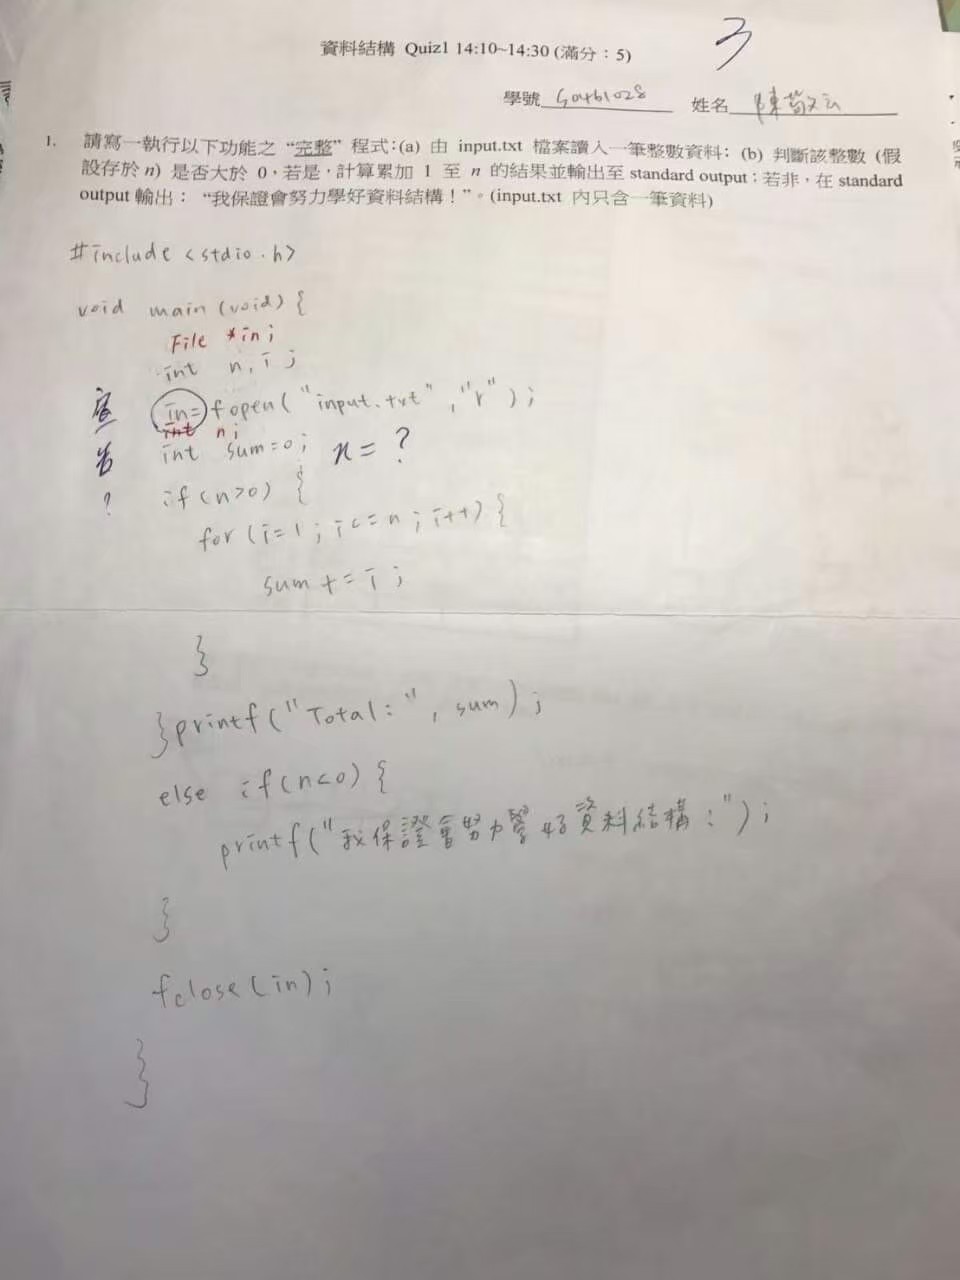 3
資料結構 Quiz1 14:10~14:30 (滿分：5)
學號 姓名 陳
1. 請寫一執行以下功能之 “完整” 程式：(a) 由 input.txt 檔案讀入一筆整數資料；(b) 判斷該整數 (假
設存於 n) 是否大於 0，若是，計算累加 1 至 n 的結果並輸出至 standard output；若非，在 standard
output 輸出： “我保證會努力學好資料結構！”。(input.txt 內只含一筆資料)
#include <stdio.h>
void main (void) {
File *in;
int n, i ;
宣 in= fopen( "input.txt" , "r" );
int n;
告 int sum=0; n = ?
? if (n>0) {
for (i=1 ; i<=n ; i++) {
sum += i ;
}
} printf ("Total:" , sum) ;
else if (n<0) {
printf ("我保證會努力學好資料結構!") ;
}
fclose (in) ;
}